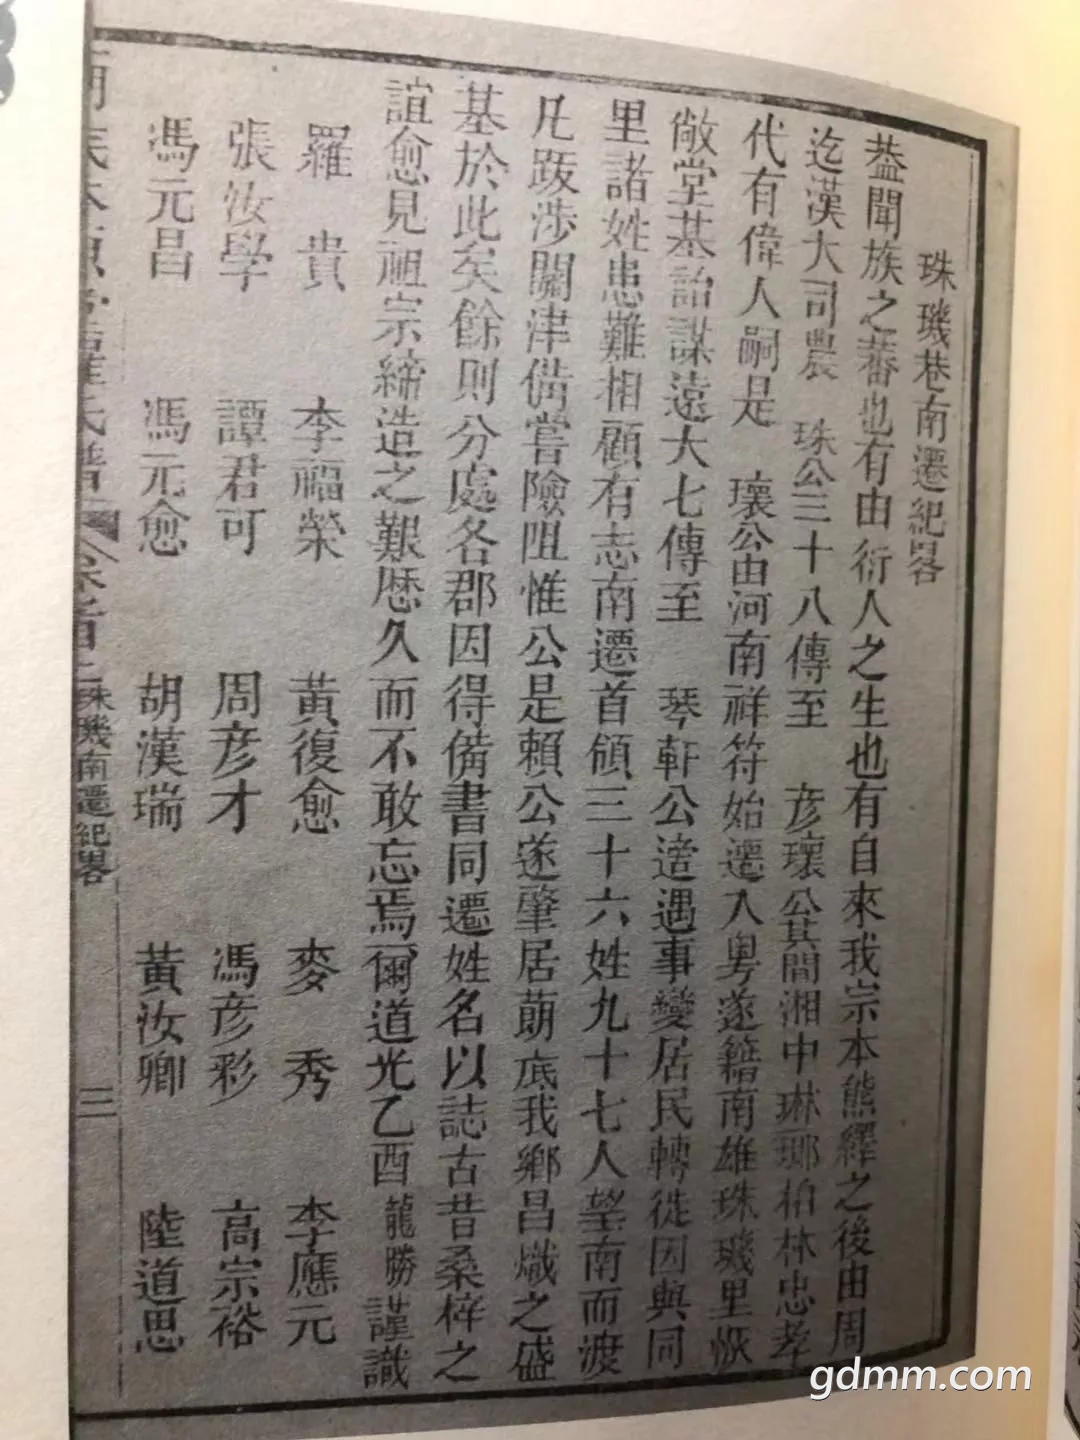 珠璣巷南遷紀畧
葢聞族之蕃也有由衍人之生也有自來我宗本熊繹之後由周
迄漢大司農 珠公三十八傳至 彥瓌公其間湘中琳瑯柏林忠孝
代有偉人嗣是 瓌公由河南祥符始遷入粤遂籍南雄珠璣里恢
敞堂基詒謀遠大七傳至 琴軒公適遇事變居民轉徙因與同
里諸姓患難相顧有志南遷首領三十六姓九十七人望南而渡
凡跋涉關津備嘗險阻惟公是賴公遂肇居蓢底我鄉昌熾之盛
基於此矣餘則分處各郡因得備書同遷姓名以誌古昔桑梓之
誼愈見祖宗締造之艱歷久而不敢忘焉爾道光乙酉龍勝謹識
羅貴 李福榮 黃復愈 麥秀 李應元
張汝學 譚君可 周彦才 馮彦彩 高宗裕
馮元昌 馮元愈 胡漢瑞 黃汝卿 陸道思
羅氏譜 卷首上 珠璣南遷紀畧 三
gdmm.com